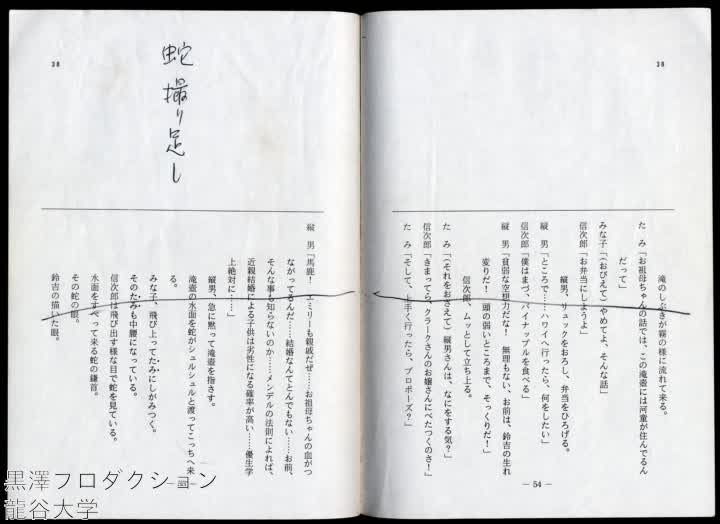 38
滝のしぶきが霧の様に流れて来る。
たみ「お祖母ちゃんの話では、この滝壺には河童が住んでるん
だって」
みな子「(おびえて)やめてよ、そんな話」
信次郎「お弁当にしようよ」
縦男、リュックをおろし、弁当をひろげる。
縦男「ところで……ハワイへ行ったら、何をしたい」
信次郎「僕はまづ、パイナップルを食べる」
縦男「貧弱な空想力だな! 無理もない、お前は、鈴吉の生れ
変りだ! 頭の弱いところまで、そっくりだ!」
信次郎、ムッとして立ち上る。
たみ「(それをおさえて)縦男さんは、なにをする気?」
信次郎「きまってら、クラークさんのお嬢さんにべたつくのさ!」
たみ「そして、上手く行ったら、プロポーズ?」
— 54 —
38
蛇撮り足し
縦男「馬鹿! エミリーも親戚だぜ……お祖母ちゃんの血がつ
ながってるんだ……結婚なんてとんでもない……お前、
そんな事も知らないのか……メンデルの法則によれば、
近親結婚による子供は劣性になる確率が高い……優生学
上絶対に……」
縦男、急に黙って滝壺を指さす。
滝壺の水面を蛇がシュルシュルと渡ってこっちへ来
る。
みな子、飛び上ってたみにしがみつく。
そのたみも中腰になっている。
信次郎は飛び出す様な目で蛇を見ている。
水面をすべって来る蛇の鎌首。
その蛇の眼。
鈴吉の描いた眼。
— 55 —
黒澤プロダクション
龍谷大学